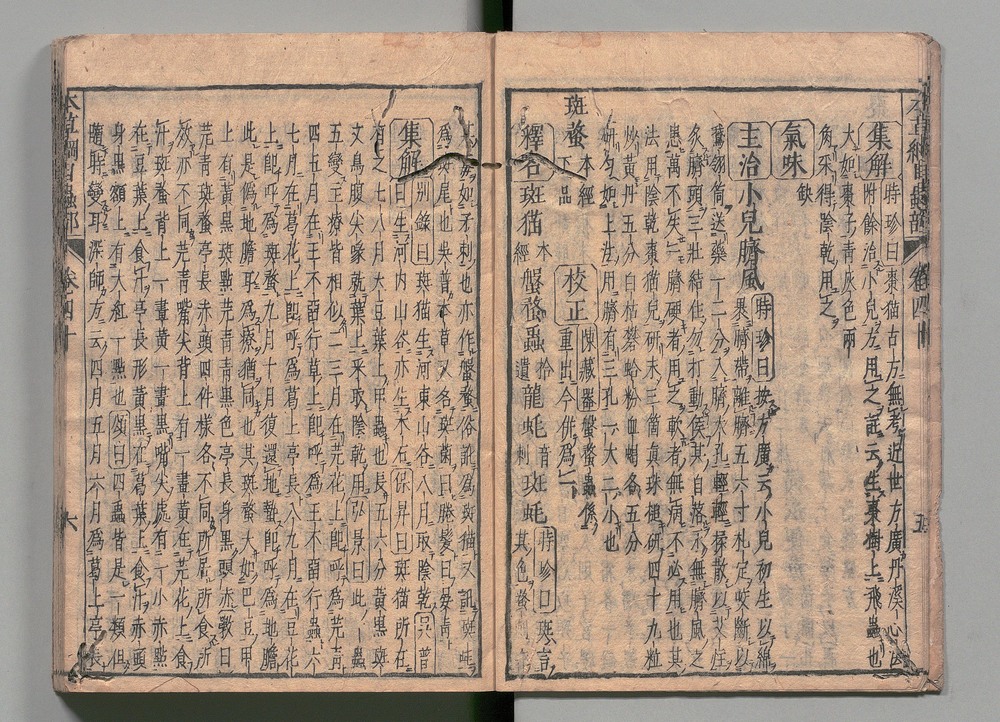 集解 時珍曰棗猫古方無考近世方廣丹溪心法
附餘治小兒方用之註云生棗樹上飛蟲也
大如棗子青灰色兩
角采得陰乾用之
氣味 缺
主治 小兒臍風 時珍曰按方廣云小兒初生以綿
裹臍帶離臍五六寸扎定咬斷以
鵞翎筒送藥一二分入臍大孔輕輕揉散以艾炷
灸臍頭三壯結住勿打動候其自落永無臍風之
患萬不失一臍硬者用之軟者無病不必用也其
法用陰乾棗猫兒研末三箇真珠槌研四十九粒
炒黃丹五分白枯礬蛤粉血蝎各五分
研勻如上法用臍有三孔一大二小也
斑蝥 本經下品 校正 陳藏器盤蝥蟲係
拾遺重出今併為一
釋名 斑猫 本經 盤蝥蟲 拾遺 龍蚝 音刺 斑蚝 時珍曰斑言其色蝥
刺如矛刺也亦作盤蝥俗訛為斑猫又訛斑蚝
為斑尾也吳普本草又名斑菌曰腃髮曰晏青
集解 別錄曰斑猫生河東山谷八月取陰乾吳普
曰生河內山谷亦生木石保昇曰斑猫所在
有之七八月大豆葉上甲蟲也長五六分黃黑斑
文烏腹尖喙就葉上采取陰乾用弘景曰此一蟲
五變主療皆相似二三月在芫花上卽呼為芫青
四五月在王不留行草上卽呼為王不留行蟲六
七月在葛花上卽呼為葛上亭長八九月在豆花
上卽呼為斑蝥九月十月復還地蟄卽呼為地膽
此是偽地膽耳為療猶同也其斑蝥大如巴豆甲
上有黃黑斑點芫青青黑色亭長身黑頭赤斆曰
芫青斑蝥亭長赤頭四件樣各不同所居所食所
效亦不同芫青嘴尖背上有一畫黃在芫花上食
汁斑蝥背上一畫黃一畫黑嘴尖處有一小赤點
在豆葉上食汁亭長形黃黑在葛葉上食汁赤頭
身黑額上有大紅一點也頌曰四蟲皆是一類但
隨時變耳深師方云四月五月六月為葛上亭長
本草綱目蟲部 卷四十 五
本草綱目蟲部 卷四十 六